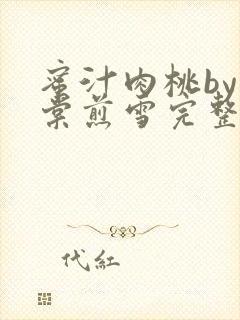 蜜汁肉桃by
棠煎雪完整
代紅